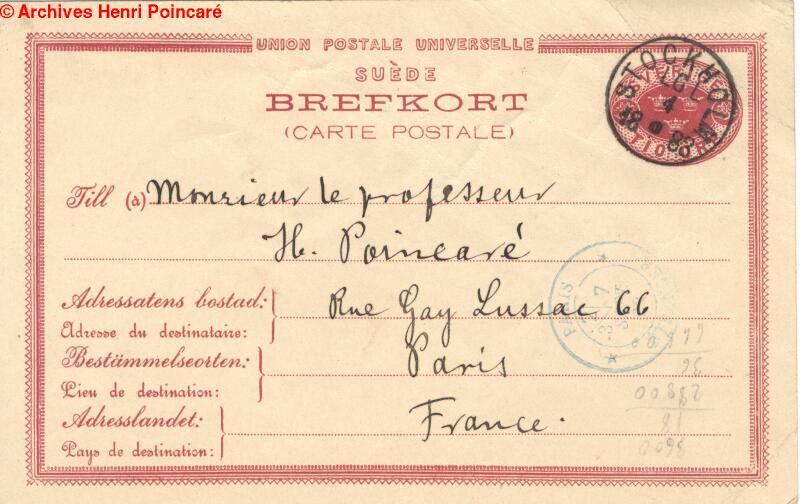 © Archives Henri Poincaré
UNION POSTALE UNIVERSELLE
SUÈDE
BREFKORT
(CARTE POSTALE)
STOCKHOLM
4
TIO ÖRE
Till (à) Monsieur le professeur
H. Poincaré
PARIS
7
Adressatens bostad: Rue Gay Lussac 66
Adresse du destinataire:
Bestämmelseorten: Paris
Lieu de destination:
Adresslandet: France.
Pays de destination:
3600
18
28800
36
64800